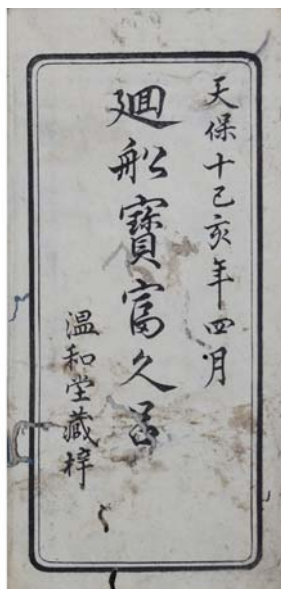 天保十己亥年四月
廻舩寳富久呂
温和堂藏梓